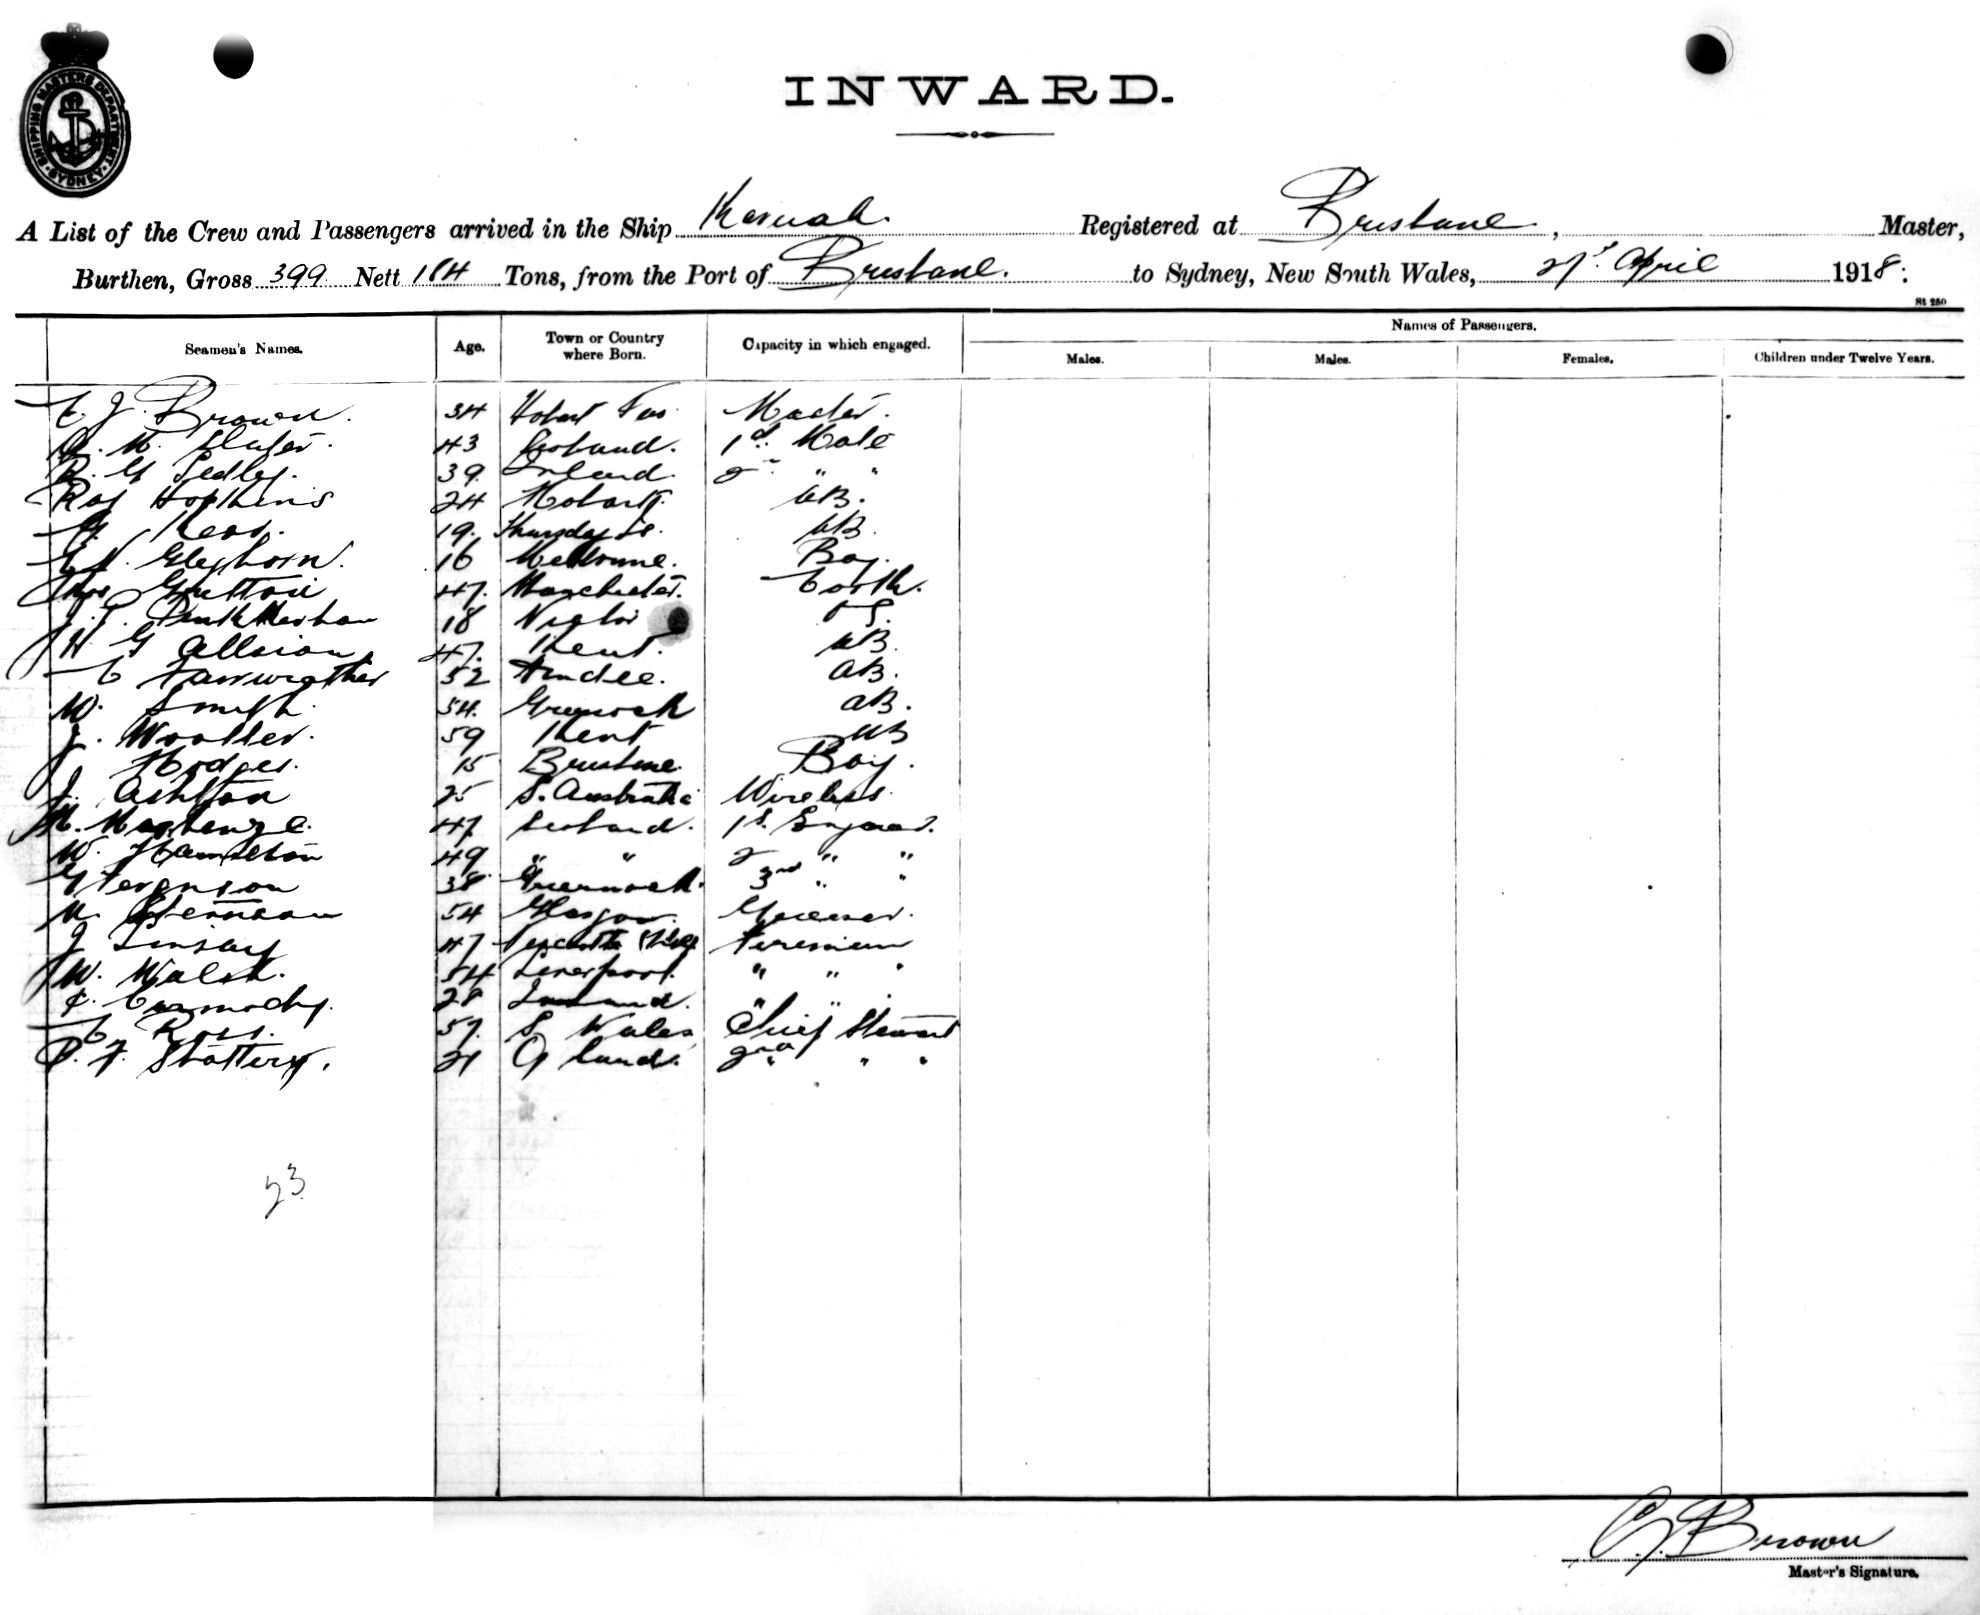 SHIPPING MASTERS DEPARTMENT
SYDNEY
INWARD.
A List of the Crew and Passengers arrived in the Ship Karuah. Registered at Brisbane, Master,
Burthen, Gross 399 Nett 184 Tons, from the Port of Brisbane. to Sydney, New South Wales, 21st April 1918:
St 250
Seamen's Names. Age. Town or Country where Born. Capacity in which engaged. Names of Passengers.
Males. Males. Females. Children under Twelve Years.
C J. Brown. 34 Hobart Tas. Master.
M. 43 Scotland. 1st Mate
R. G Sedley. 39. Ireland. 2nd " "
Roy Hopkins 24 Hobart. AB.
19. Thursday Is. AB.
Gleghorn. 16 Melbourne. Boy.
Thos 47. Manchester. Cook.
18 Victor OS.
H. G Allison 47. Kent. AB.
C Fairweather 52 Dundee. AB.
W. Smith. 54. Greenock AB.
J. Wooller. 59 Kent AB
J Hodges. 15 Brisbane. Boy.
J. Ashton 25 S. Australia Wireless.
M. Mackenzie. 47 Scotland. 1st Engineer.
W. Hamilton 49 " " 2 " "
G Ferguson 38 Greenock. 3rd " "
54 Glasgow. Greaser.
J Linsay 47 Newcastle Fireman
W. Walsh. 54 Liverpool. " " "
C. Carmody. 28 " "
C Ross. 57. S. Wales Chief Steward
P. F. Slattery. 21 Q land. 2nd " " "
23
C. J. Brown
Master's Signature.